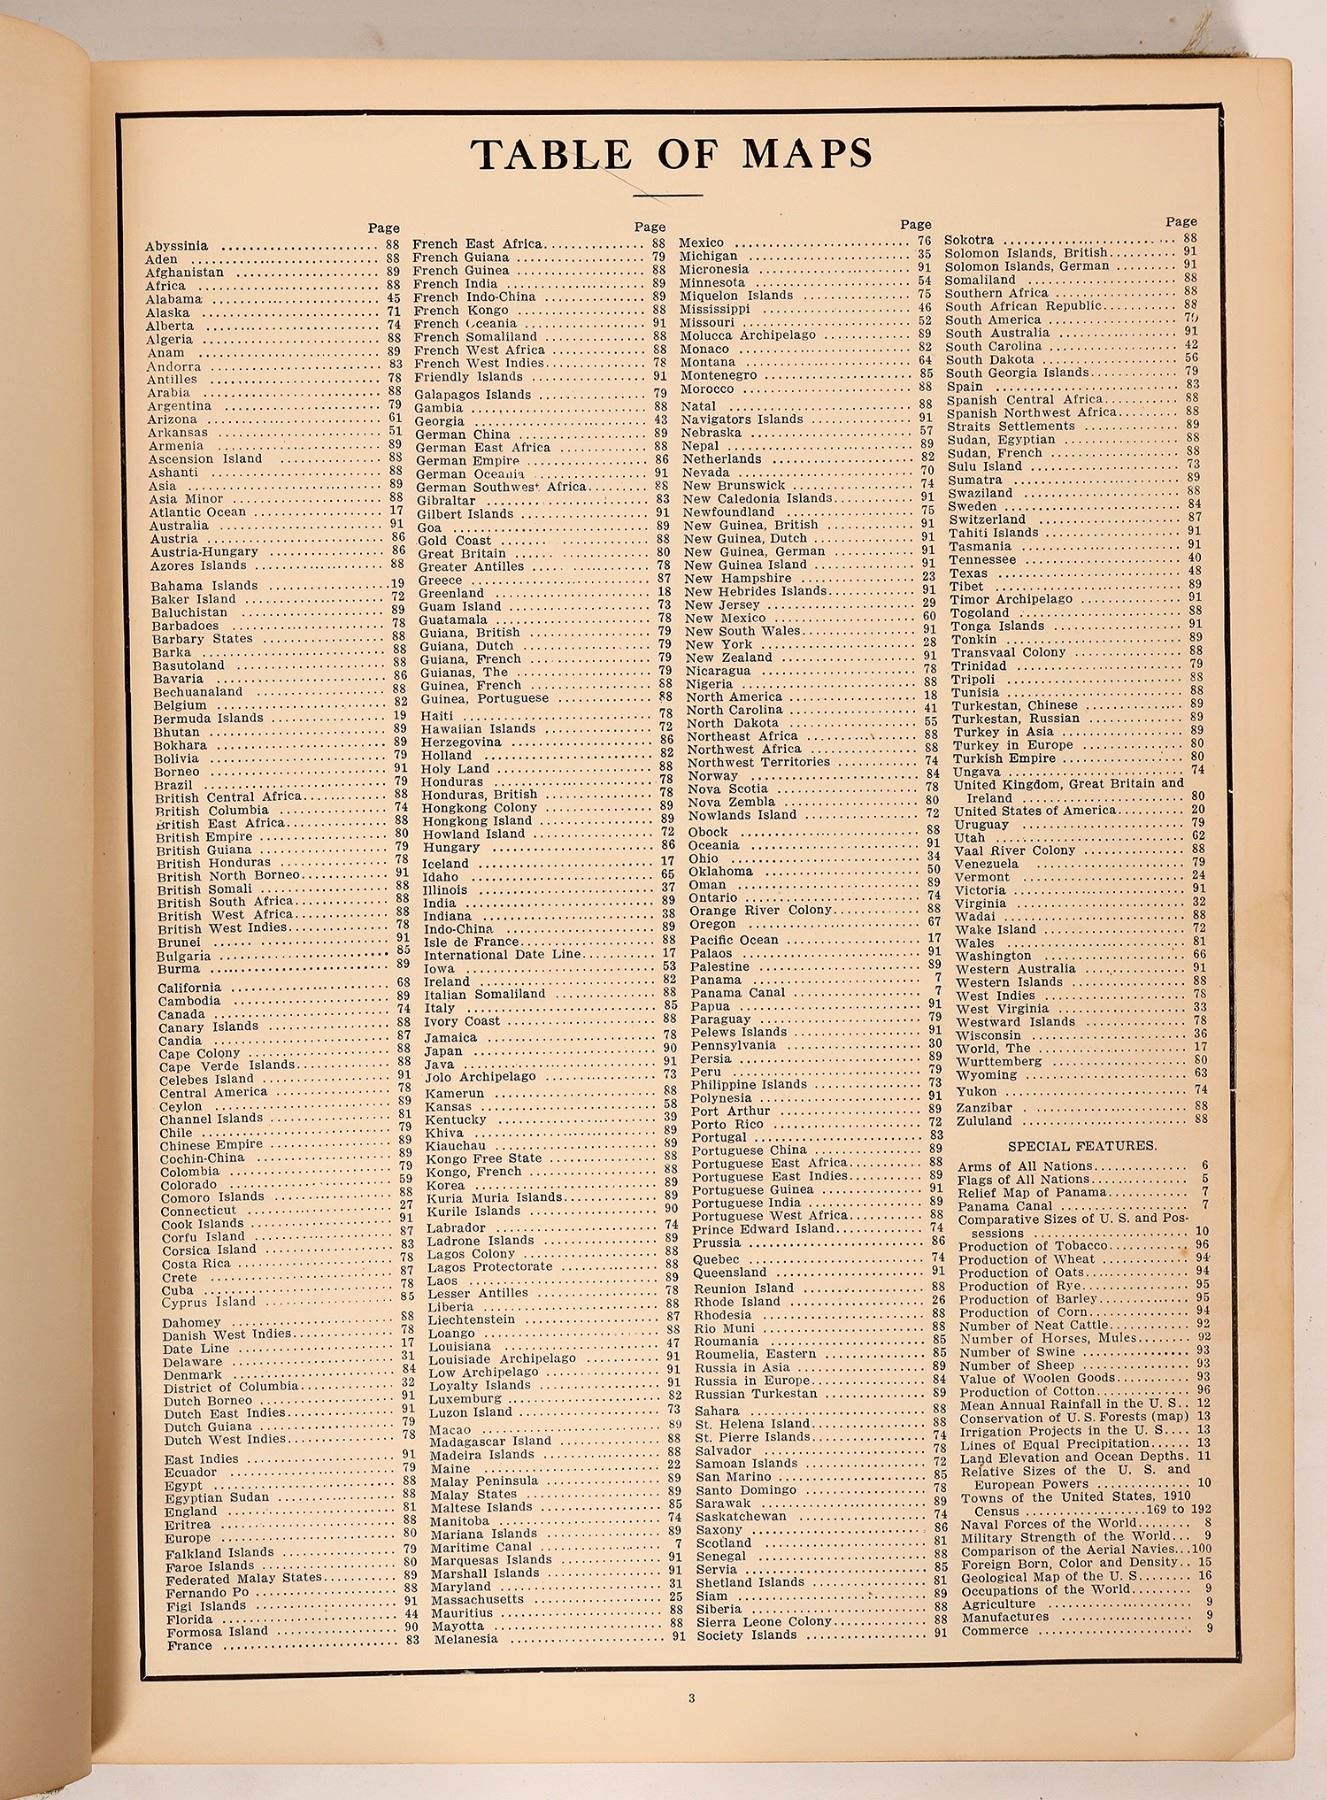 TABLE OF MAPS
Page
Abyssinia 88
Aden 88
Afghanistan 89
Africa 88
Alabama 45
Alaska 71
Alberta 74
Algeria 88
Anam 89
Andorra 83
Antilles 78
Arabia 88
Argentina 79
Arizona 61
Arkansas 51
Armenia 89
Ascension Island 88
Ashanti 88
Asia 89
Asia Minor 88
Atlantic Ocean 17
Australia 91
Austria 86
Austria-Hungary 86
Azores Islands 88
Bahama Islands 19
Baker Island 72
Baluchistan 89
Barbadoes 78
Barbary States 88
Barka 88
Basutoland 88
Bavaria 86
Bechuanaland 88
Belgium 82
Bermuda Islands 19
Bhutan 89
Bokhara 89
Bolivia 79
Borneo 91
Brazil 79
British Central Africa 88
British Columbia 74
British East Africa 88
British Empire 80
British Guiana 79
British Honduras 78
British North Borneo 91
British Somali 88
British South Africa 88
British West Africa 88
British West Indies 78
Brunei 91
Bulgaria 85
Burma 89
California 68
Cambodia 89
Canada 74
Canary Islands 88
Candia 87
Cape Colony 88
Cape Verde Islands 88
Celebes Island 91
Central America 78
Ceylon 89
Channel Islands 81
Chile 79
Chinese Empire 89
Cochin-China 89
Colombia 79
Colorado 59
Comoro Islands 88
Connecticut 27
Cook Islands 91
Corfu Island 87
Corsica Island 83
Costa Rica 78
Crete 87
Cuba 78
Cyprus Island 85
Dahomey 88
Danish West Indies 78
Date Line 17
Delaware 31
Denmark 84
District of Columbia 32
Dutch Borneo 91
Dutch East Indies 91
Dutch Guiana 79
Dutch West Indies 78
East Indies 91
Ecuador 79
Egypt 88
Egyptian Sudan 88
England 81
Eritrea 88
Europe 80
Falkland Islands 79
Faroe Islands 80
Federated Malay States 89
Fernando Po 88
Figi Islands 91
Florida 44
Formosa Island 90
France 83
Page
French East Africa 88
French Guiana 79
French Guinea 88
French India 89
French Indo-China 89
French Kongo 88
French Oceania 91
French Somaliland 88
French West Africa 88
French West Indies 78
Friendly Islands 91
Galapagos Islands 79
Gambia 88
Georgia 43
German China 89
German East Africa 88
German Empire 86
German Oceania 91
German Southwest Africa 88
Gibraltar 83
Gilbert Islands 91
Goa 89
Gold Coast 88
Great Britain 80
Greater Antilles 78
Greece 87
Greenland 18
Guam Island 73
Guatamala 78
Guiana, British 79
Guiana, Dutch 79
Guiana, French 79
Guianas, The 79
Guinea, French 88
Guinea, Portuguese 88
Haiti 78
Hawaiian Islands 72
Herzegovina 86
Holland 82
Holy Land 88
Honduras 78
Honduras, British 78
Hongkong Colony 89
Hongkong Island 89
Howland Island 72
Hungary 86
Iceland 17
Idaho 65
Illinois 37
India 89
Indiana 38
Indo-China 89
Isle de France 88
International Date Line 17
Iowa 53
Ireland 82
Italian Somaliland 88
Italy 85
Ivory Coast 88
Jamaica 78
Japan 90
Java 91
Jolo Archipelago 73
Kamerun 88
Kansas 58
Kentucky 39
Khiva 89
Kiauchau 89
Kongo Free State 88
Kongo, French 88
Korea 89
Kuria Muria Islands 89
Kurile Islands 90
Labrador 74
Ladrone Islands 89
Lagos Colony 88
Lagos Protectorate 88
Laos 89
Lesser Antilles 78
Liberia 88
Liechtenstein 87
Loango 88
Louisiana 47
Louisiade Archipelago 91
Low Archipelago 91
Loyalty Islands 91
Luxemburg 82
Luzon Island 73
Macao 89
Madagascar Island 88
Madeira Islands 88
Maine 22
Malay Peninsula 89
Malay States 89
Maltese Islands 85
Manitoba 74
Mariana Islands 89
Maritime Canal 7
Marquesas Islands 91
Marshall Islands 91
Maryland 31
Massachusetts 25
Mauritius 88
Mayotta 88
Melanesia 91
Page
Mexico 76
Michigan 35
Micronesia 91
Minnesota 54
Miquelon Islands 75
Mississippi 46
Missouri 52
Molucca Archipelago 89
Monaco 82
Montana 64
Montenegro 85
Morocco 88
Natal 88
Navigators Islands 91
Nebraska 57
Nepal 89
Netherlands 82
Nevada 70
New Brunswick 74
New Caledonia Islands 91
Newfoundland 75
New Guinea, British 91
New Guinea, Dutch 91
New Guinea, German 91
New Guinea Island 91
New Hampshire 23
New Hebrides Islands 91
New Jersey 29
New Mexico 60
New South Wales 91
New York 28
New Zealand 91
Nicaragua 78
Nigeria 88
North America 18
North Carolina 41
North Dakota 55
Northeast Africa 88
Northwest Africa 88
Northwest Territories 74
Norway 84
Nova Scotia 78
Nova Zembla 80
Nowlands Island 72
Obock 88
Oceania 91
Ohio 34
Oklahoma 50
Oman 89
Ontario 74
Orange River Colony 88
Oregon 67
Pacific Ocean 17
Palaos 91
Palestine 89
Panama 7
Panama Canal 7
Papua 91
Paraguay 79
Pelews Islands 91
Pennsylvania 30
Persia 89
Peru 79
Philippine Islands 73
Polynesia 91
Port Arthur 89
Porto Rico 72
Portugal 83
Portuguese China 89
Portuguese East Africa 88
Portuguese East Indies 89
Portuguese Guinea 91
Portuguese India 89
Portuguese West Africa 88
Prince Edward Island 74
Prussia 86
Quebec 74
Queensland 91
Reunion Island 88
Rhode Island 26
Rhodesia 88
Rio Muni 88
Roumania 85
Roumelia, Eastern 85
Russia in Asia 89
Russia in Europe 84
Russian Turkestan 89
Sahara 88
St. Helena Island 88
St. Pierre Islands 74
Salvador 78
Samoan Islands 72
San Marino 85
Santo Domingo 78
Sarawak 89
Saskatchewan 74
Saxony 86
Scotland 81
Senegal 88
Servia 85
Shetland Islands 81
Siam 89
Siberia 88
Sierra Leone Colony 88
Society Islands 91
Page
Sokotra 88
Solomon Islands, British 91
Solomon Islands, German 91
Somaliland 88
Southern Africa 88
South African Republic 88
South America 79
South Australia 91
South Carolina 42
South Dakota 56
South Georgia Islands 79
Spain 83
Spanish Central Africa 88
Spanish Northwest Africa 88
Straits Settlements 89
Sudan, Egyptian 88
Sudan, French 88
Sulu Island 73
Sumatra 89
Swaziland 88
Sweden 84
Switzerland 87
Tahiti Islands 91
Tasmania 91
Tennessee 40
Texas 48
Tibet 89
Timor Archipelago 91
Togoland 88
Tonga Islands 91
Tonkin 89
Transvaal Colony 88
Trinidad 79
Tripoli 88
Tunisia 88
Turkestan, Chinese 89
Turkestan, Russian 89
Turkey in Asia 89
Turkey in Europe 80
Turkish Empire 80
Ungava 74
United Kingdom, Great Britain and
Ireland 80
United States of America 20
Uruguay 79
Utah 62
Vaal River Colony 88
Venezuela 79
Vermont 24
Victoria 91
Virginia 32
Wadai 88
Wake Island 72
Wales 81
Washington 66
Western Australia 91
Western Islands 88
West Indies 78
West Virginia 33
Westward Islands 78
Wisconsin 36
World, The 17
Wurttemberg 80
Wyoming 63
Yukon 74
Zanzibar 88
Zululand 88
SPECIAL FEATURES.
Arms of All Nations 6
Flags of All Nations 5
Relief Map of Panama 7
Panama Canal 7
Comparative Sizes of U. S. and Pos-
sessions 10
Production of Tobacco 96
Production of Wheat 94
Production of Oats 94
Production of Rye 95
Production of Barley 95
Production of Corn 94
Number of Neat Cattle 92
Number of Horses, Mules 92
Number of Swine 93
Number of Sheep 93
Value of Woolen Goods 93
Production of Cotton 96
Mean Annual Rainfall in the U. S. 12
Conservation of U. S. Forests (map) 13
Irrigation Projects in the U. S. 13
Lines of Equal Precipitation 13
Land Elevation and Ocean Depths. 11
Relative Sizes of the U. S. and
European Powers 10
Towns of the United States, 1910
Census 169 to 192
Naval Forces of the World 8
Military Strength of the World 9
Comparison of the Aerial Navies 100
Foreign Born, Color and Density 15
Geological Map of the U. S. 16
Occupations of the World 9
Agriculture 9
Manufactures 9
Commerce 9
3